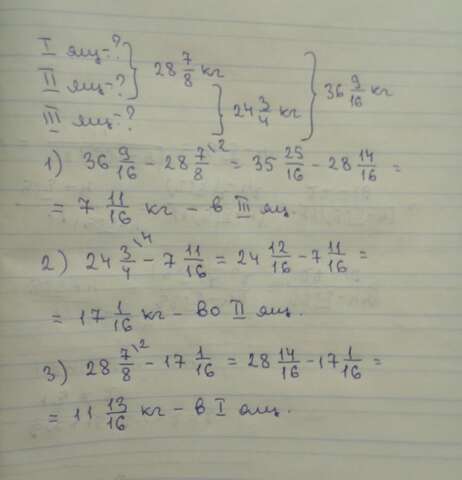 I ящ-? } 28 7/8 кг } 36 9/16 кг
II ящ-? } 24 3/4 кг
III ящ-?
1) 36 9/16 - 28 7/8\2 = 35 25/16 - 28 14/16 =
= 7 11/16 кг - в III ящ
2) 24 3/4\4 - 7 11/16 = 24 12/16 - 7 11/16 =
= 17 1/16 кг - во II ящ.
3) 28 7/8\2 - 17 1/16 = 28 14/16 - 17 1/16 =
= 11 13/16 кг - в I ящ.